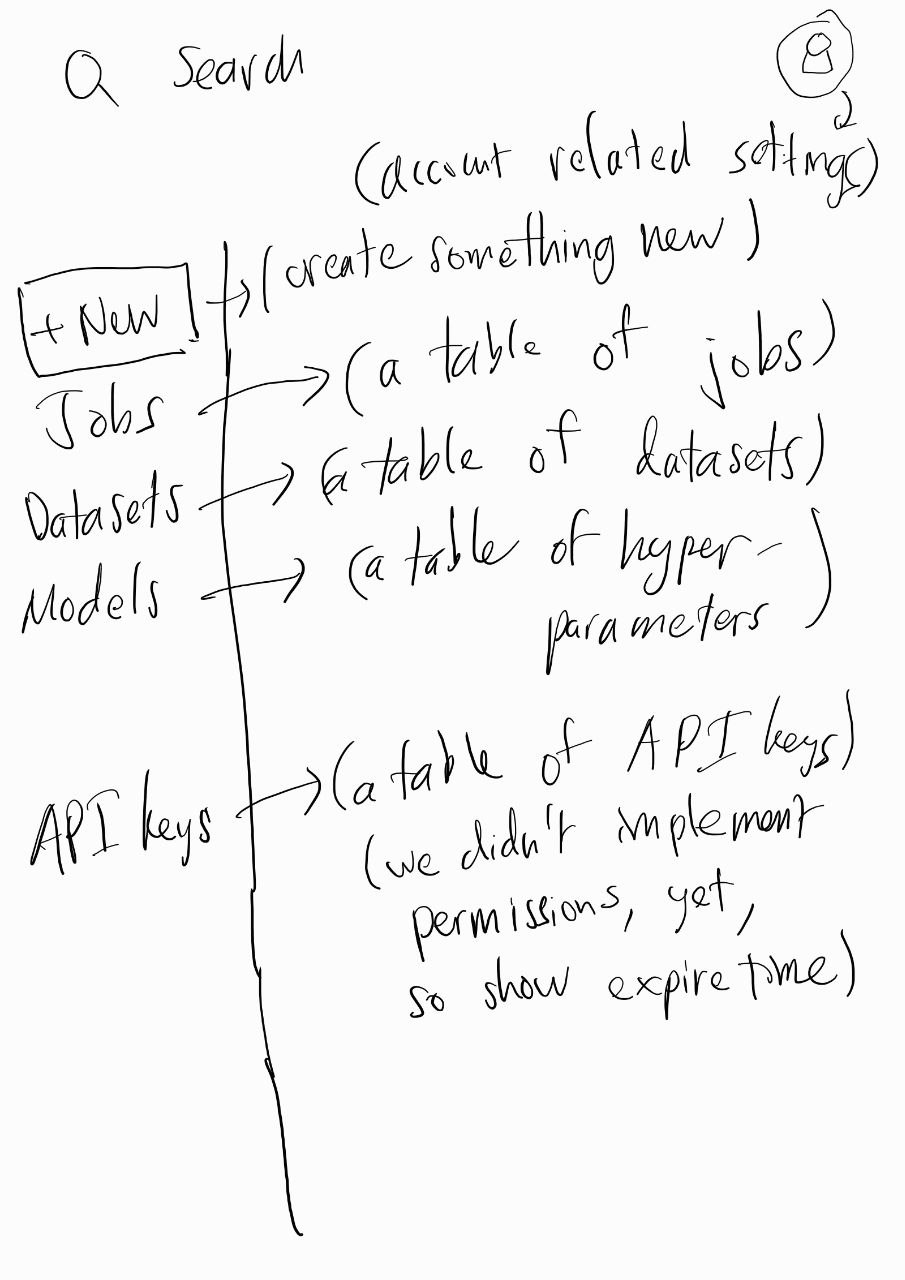 Search
(account related settings)
+ New → (create something new)
Jobs → (a table of jobs)
Datasets → (a table of datasets)
Models → (a table of hyper-
parameters)
API keys → (a table of API keys)
(we didn't implement
permissions, yet,
so show expire time)